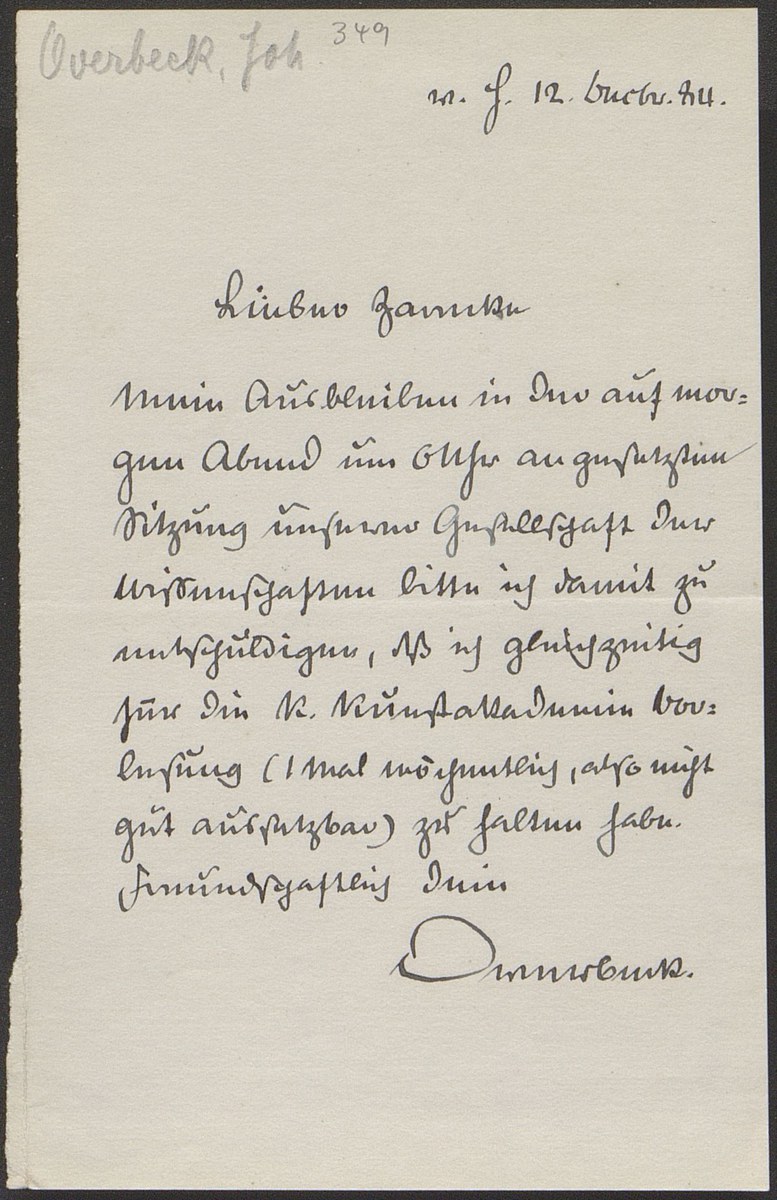 Overbeck, Joh 349
v. H. 12. Decbr. 84.
Lieber Zarncke
Mein Ausbleiben in der auf mor=
gen Abend um 6 Uhr angesetzten
Sitzung unserer Gesellschaft der
Wissenschaften bitte ich damit zu
entschuldigen, dß ich gleichzeitig
für die K. Kunstakademie Vor=
lesung (1 Mal wöchentlich, also nicht
gut aussetzbar) zu halten habe.
Freundschaftlich Dein
Overbeck.